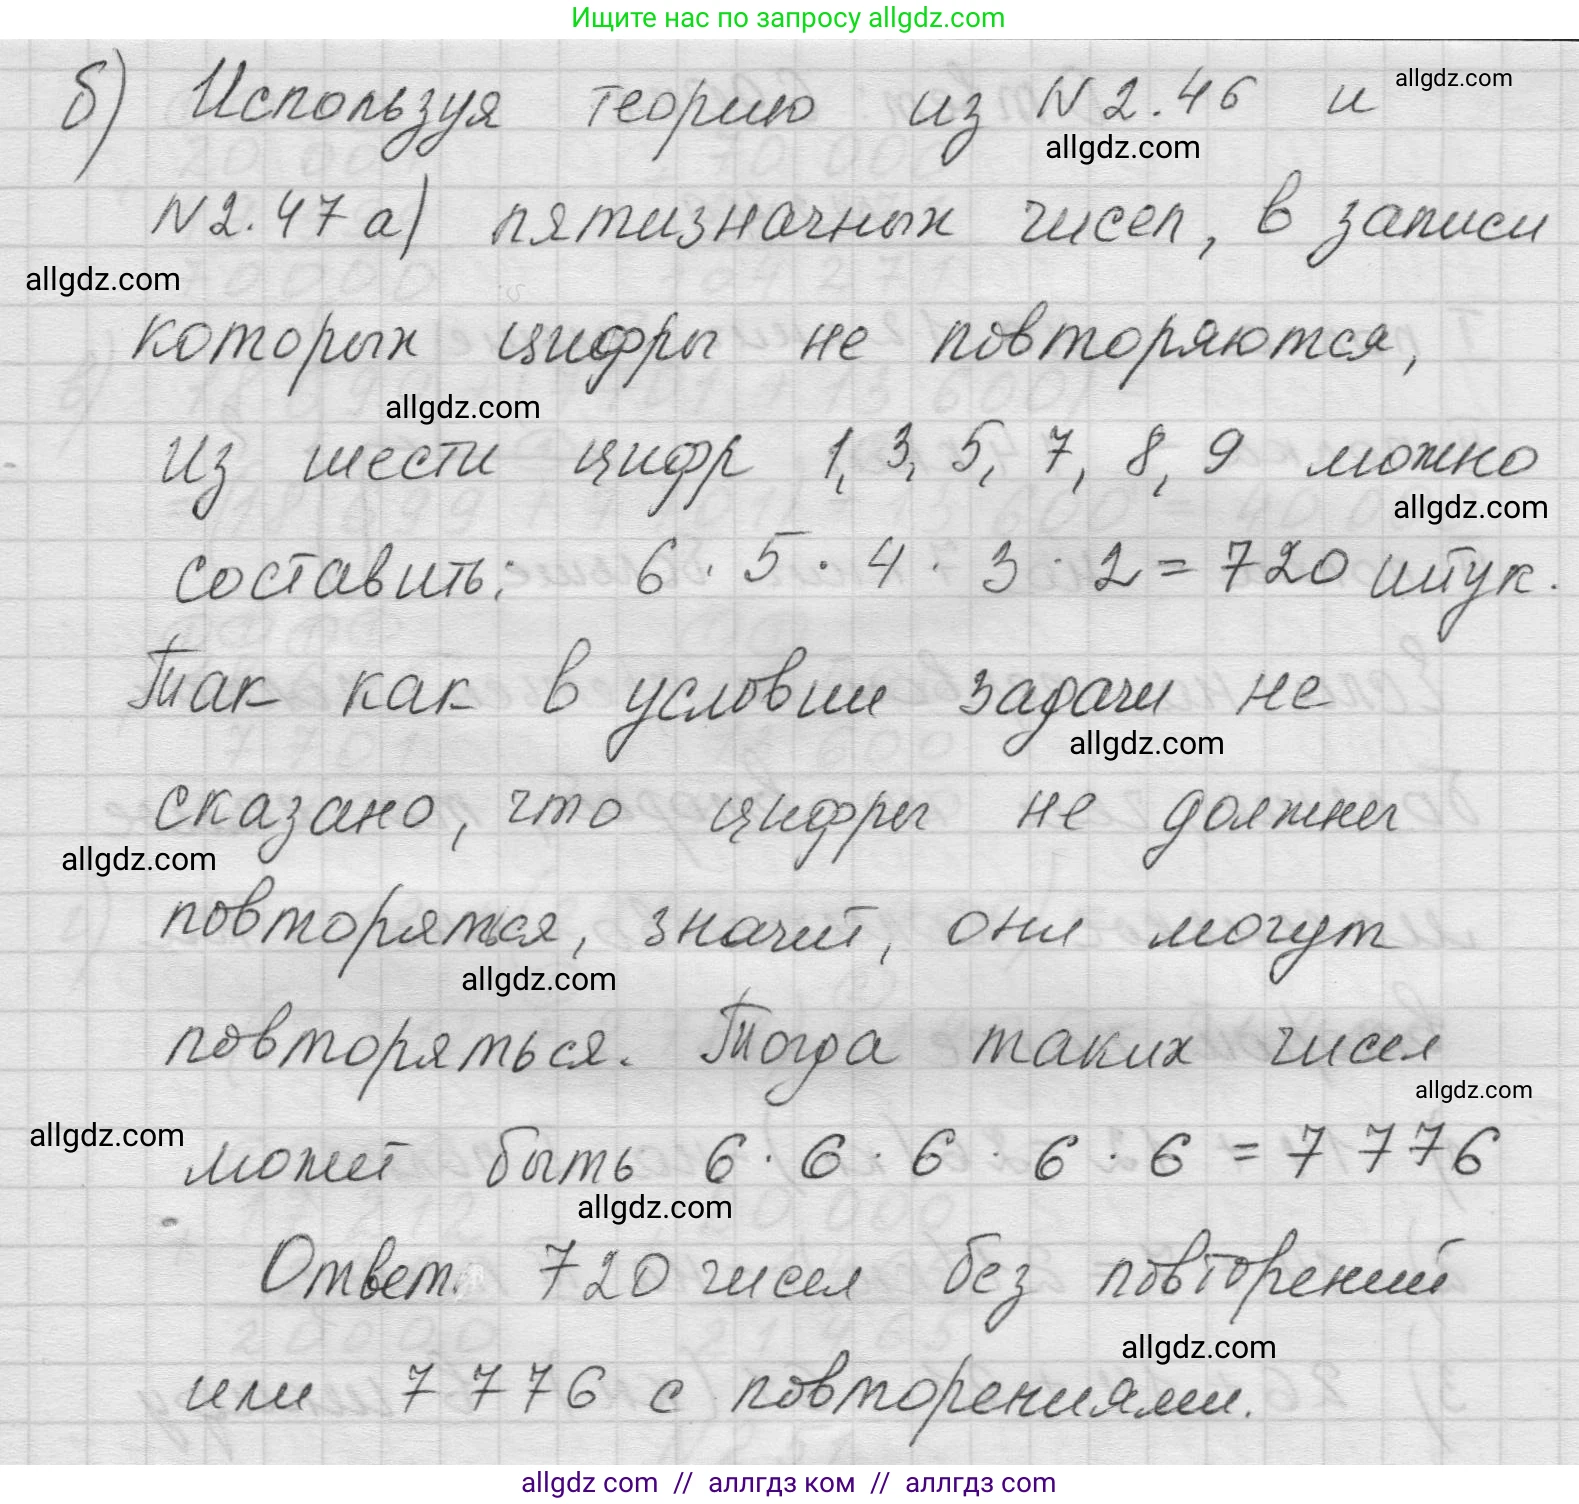 Ищите нас по запросу allgdz.com
allgdz.com
б) Используя теорию из N 2.46 и
allgdz.com
N 2.47 а) пятизначных чисел, в записи
allgdz.com
которых цифры не повторяются,
allgdz.com
из шести цифр 1, 3, 5, 7, 8, 9 можно
allgdz.com
составить: 6 · 5 · 4 · 3 · 2 = 720 штук.
Так как в условии задачи не
allgdz.com
сказано, что цифры не должны
allgdz.com
повторяться, значит, они могут
allgdz.com
повторяться. Тогда таких чисел
allgdz.com
allgdz.com
может быть 6 · 6 · 6 · 6 · 6 = 7 776
allgdz.com
Ответ. 720 чисел без повторений
allgdz.com
или 7 776 с повторениями.
allgdz com // аллгдз ком // аллгдз com